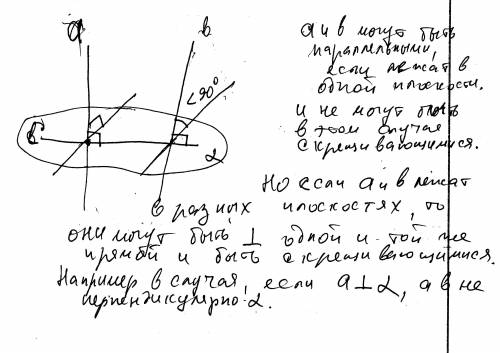 a
b
a и b могут быть
параллельными,
если лежат в
<90°
одной плоскости.
и не могут быть
в этом случае
c
α
скрещивающимися.
Но если a и b лежат
в разных плоскостях, то
они могут быть ⊥ одной и той же
прямой и быть скрещивающимися.
Например в случае, если a⊥α, а b не
перпендикулярно α.